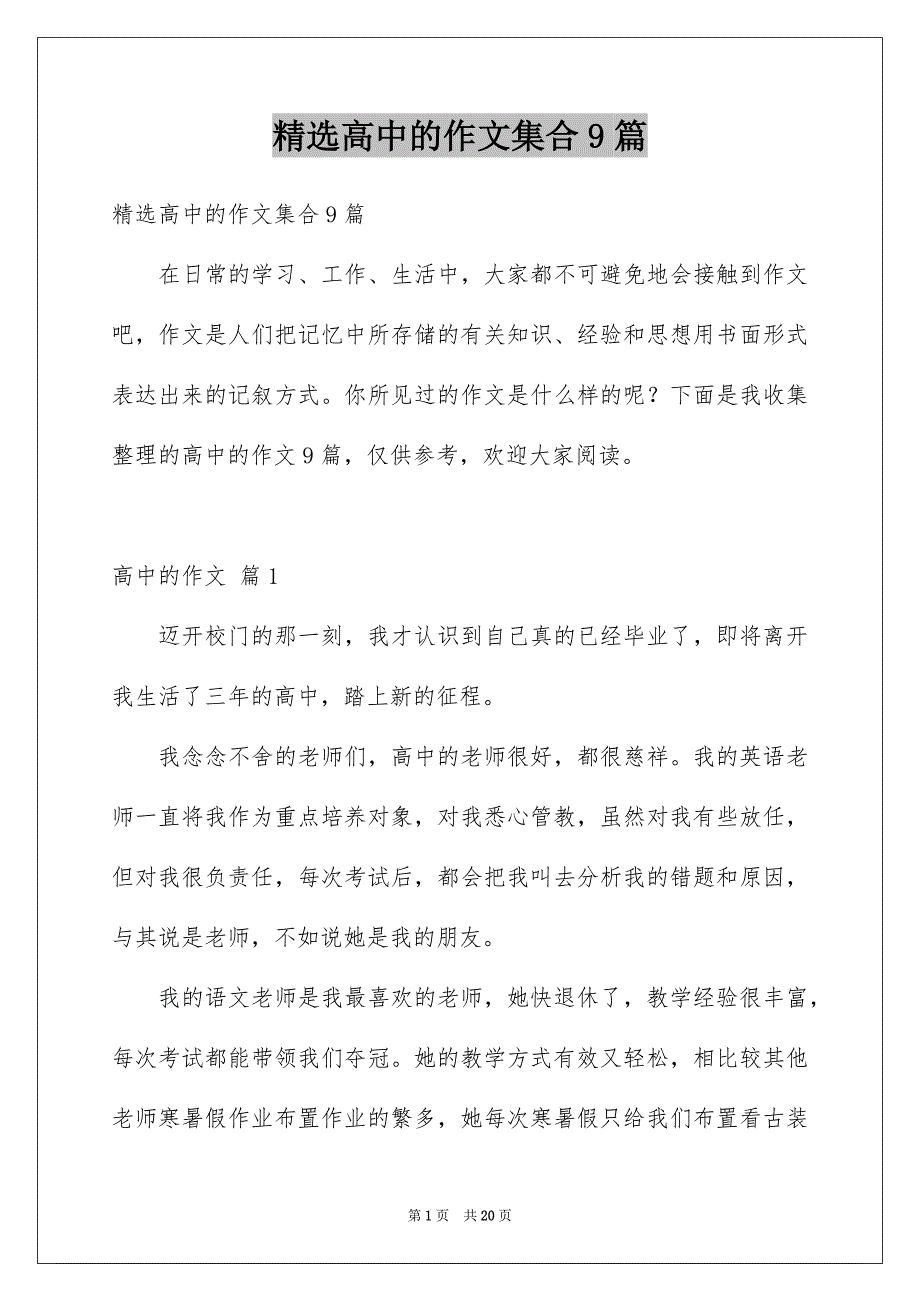 精选高中的作文集合9篇
精选高中的作文集合9篇
在日常的学习、工作、生活中，大家都不可避免地会接触到作文
吧，作文是人们把记忆中所存储的有关知识、经验和思想用书面形式
表达出来的记叙方式。你所见过的作文是什么样的呢？下面是我收集
整理的高中的作文9篇，仅供参考，欢迎大家阅读。
高中的作文 篇1
迈开校门的那一刻，我才认识到自己真的已经毕业了，即将离开
我生活了三年的高中，踏上新的征程。
我念念不舍的老师们，高中的老师很好，都很慈祥。我的英语老
师一直将我作为重点培养对象，对我悉心管教，虽然对我有些放任，
但对我很负责任，每次考试后，都会把我叫去分析我的错题和原因，
与其说是老师，不如说她是我的朋友。
我的语文老师是我最喜欢的老师，她快退休了，教学经验很丰富，
每次考试都能带领我们夺冠。她的教学方式有效又轻松，相比较其他
老师寒暑假作业布置作业的繁多，她每次寒暑假只给我们布置看古装
第1页 共20页